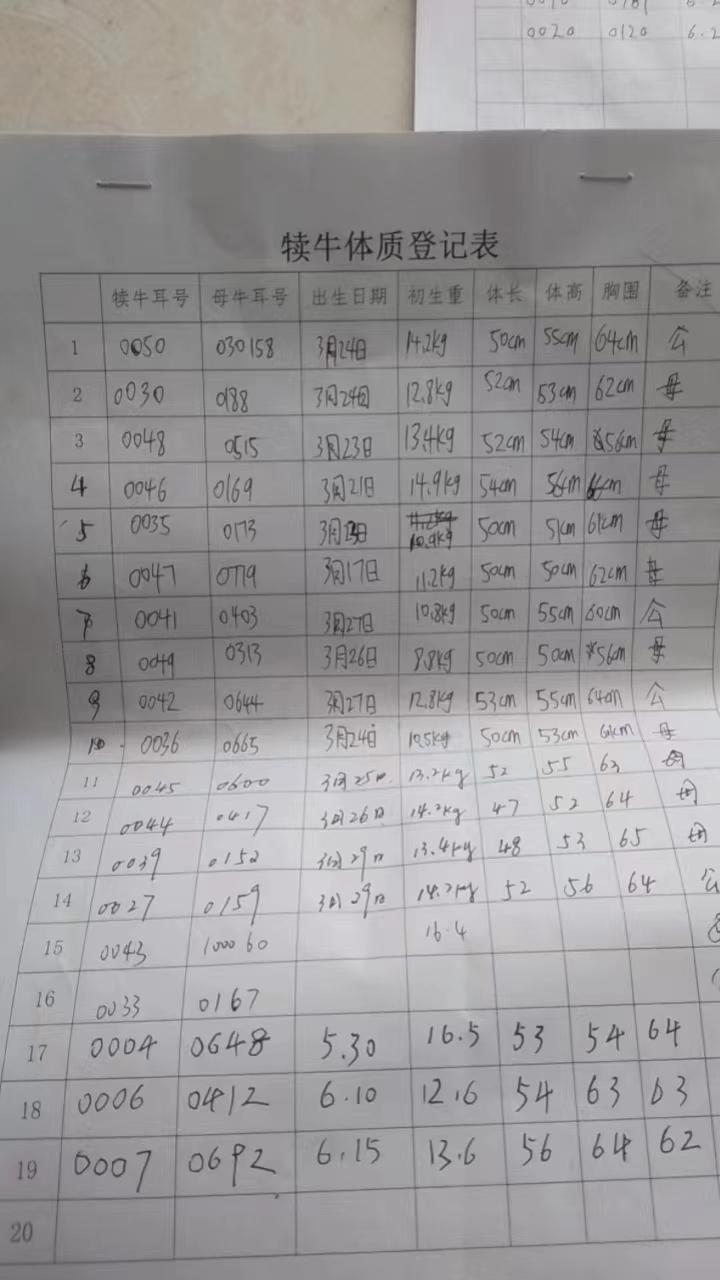 0020 0120 6.2
犊牛体质登记表
犊牛耳号 母牛耳号 出生日期 初生重 体长 体高 胸围 备注
1 0050 030158 3月24日 14.2kg 50cm 55cm 64cm 公
2 0030 0188 3月24日 12.8kg 52cm 53cm 62cm 母
3 0048 0515 3月23日 13.4kg 52cm 54cm 56cm 母
4 0046 0169 3月21日 14.9kg 54cm 56cm 66cm 母
5 0035 0173 3月23日 10.9kg 50cm 51cm 61cm 母
6 0047 0719 3月17日 11.2kg 50cm 50cm 62cm 母
7 0041 0403 3月27日 10.8kg 50cm 55cm 60cm 公
8 0049 0313 3月26日 9.8kg 50cm 50cm 56cm 母
9 0042 0644 3月27日 12.8kg 53cm 55cm 64cm 公
10 0036 0665 3月24日 10.5kg 50cm 53cm 61cm 母
11 0045 0600 3月25日 13.2kg 52 55 63 母
12 0044 0417 3月26日 14.2kg 47 52 64 母
13 0039 0152 3月29日 13.4kg 48 53 65 母
14 0027 0159 3月29日 14.2kg 52 56 64 公
15 0043 100060 16.4
16 0033 0167
17 0004 0648 5.30 16.5 53 54 64
18 0006 0412 6.10 12.6 54 63 63
19 0007 0692 6.15 13.6 56 64 62
20